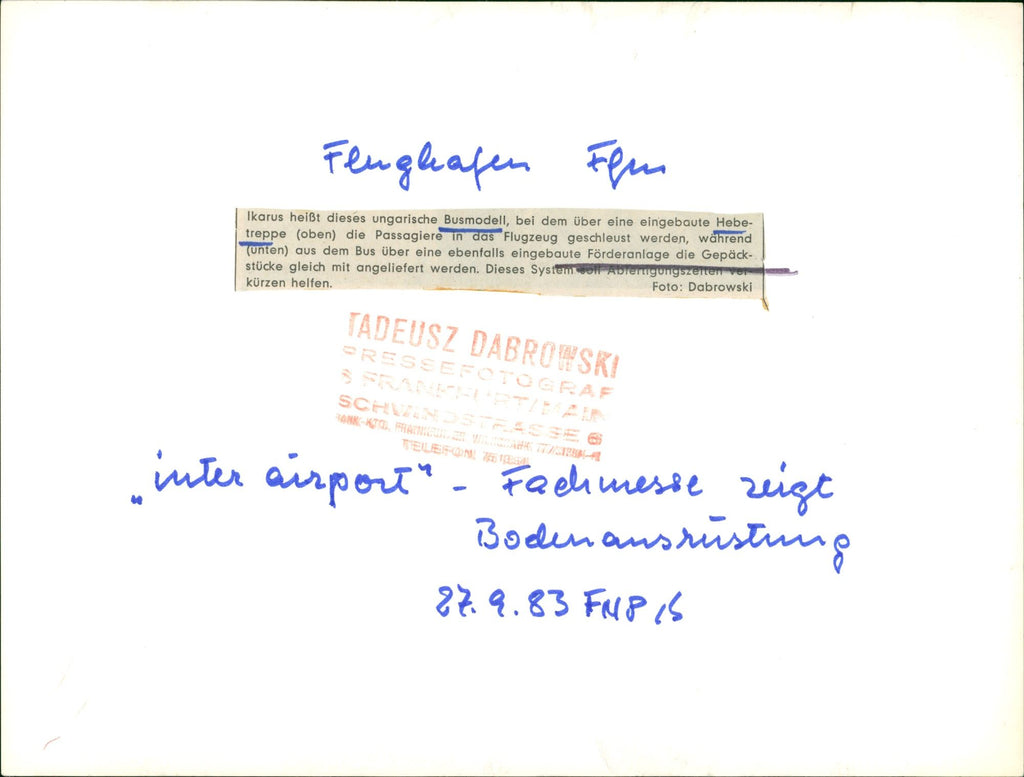 Flughafen Ffm
Ikarus heißt dieses ungarische Busmodell, bei dem über eine eingebaute Hebe-
treppe (oben) die Passagiere in das Flugzeug geschleust werden, während
(unten) aus dem Bus über eine ebenfalls eingebaute Förderanlage die Gepäck-
stücke gleich mit angeliefert werden. Dieses System soll Abfertigungszeiten ver-
kürzen helfen. Foto: Dabrowski
TADEUSZ DABROWSKI
PRESSEFOTOGRAF
6 FRANKFURT/MAIN
SCHWANDSTRASSE 6
TELEFON
„inter airport“ - Fachmesse zeigt
Bodenausrüstung
27.9.83 FNP